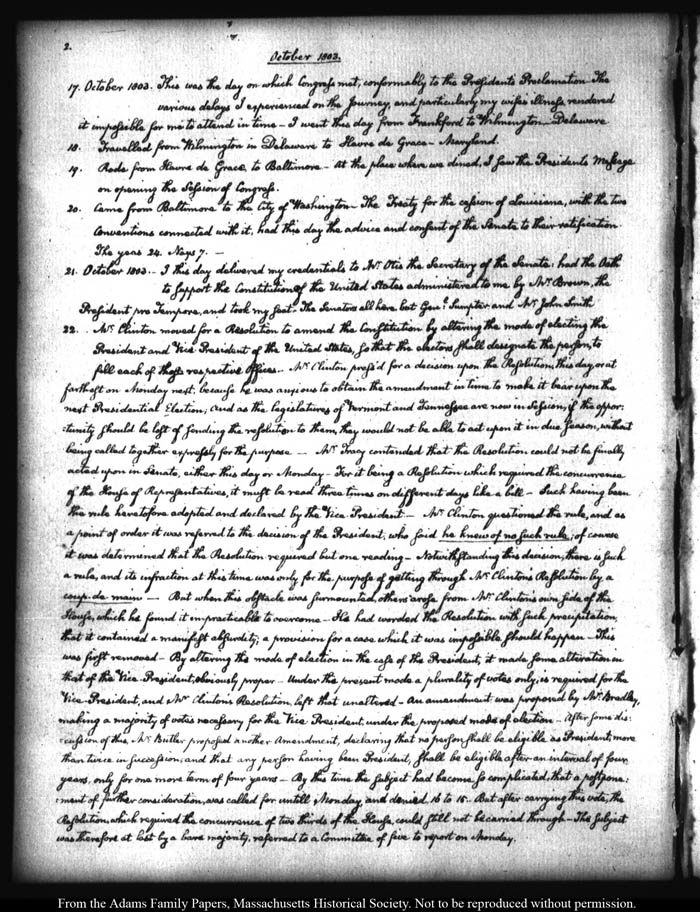 2.
October 1803.
17. October 1803. This was the day on which Congress met, conformably to the President's Proclamation. The
various delays I experienced on the Journey, and particularly my wife's illness rendered
it impossible for me to attend in time - I went this day from Frankford to Wilmington Delaware
18. Travelled from Wilmington in Delaware to Havre de Grace - Maryland.
19. Rode from Havre de Grace, to Baltimore - At the place where we dined, I saw the President's Message
on opening the Session of Congress.
20. Came from Baltimore to the City of Washington - The Treaty for the cession of Louisiana, with the two
Conventions connected with it, had this day the advice and consent of the Senate to their ratification.
The yeas 24. Nays 7. -
21. October 1803. - I this day delivered my credentials to Mr. Otis the Secretary of the Senate; had the Oath
to support the Constitution of the United States administered to me by Mr. Brown, the
President pro Tempore, and took my seat. The Senators all here, but Genl. Sumpter and Mr. John Smith
22. . Mr. Clinton moved for a Resolution to amend the Constitution by altering the mode of electing the
President and Vice President of the United States, so that the electors shall designate the person, to
fill each of those respective Offices. - Mr. Clinton press'd for a decision upon the Resolution, this day, or at
farthest on Monday next, because he was anxious to obtain the amendment in time to make it bear upon the
next Presidential Election; And as the legislatures of Vermont and Tennessee are now in Session, if the oppor:
:tunity should be lost of sending the resolution to them, they would not be able to act upon it in due season, without
being called together expressly for the purpose - Mr. Tracy contended that the Resolution could not be finally
acted upon in Senate, either this day or Monday - For it being a Resolution which required the concurrence
of the House of Representatives, it must be read three times on different days like a bill - Such having been
the rule heretofore adopted and declared by the Vice President - Mr. Clinton questioned the rule, and as
a point of order it was referred to the decision of the President, who said he knew of no such rule; of course
it was determined that the Resolution required but one reading - Notwithstanding this decision, there is such
a rule, and its infraction at this time was only for the purpose of getting through Mr. Clinton's Resolution by a
coup-de main - But when this obstacle was surmounted, others arose from Mr. Clinton's own side of the
House, which he found it impracticable to overcome - He had worded the Resolution with such precipitation,
that it contained a manifest absurdity; a provision for a case which it was impossible should happen - This
was first removed - By altering the mode of election in the case of the President, it made some alteration in
that of the Vice-President, obviously proper - Under the present mode a plurality of votes only, is required for the
Vice President, and Mr. Clinton's Resolution, left that unaltered - An amendment was proposed by Mr. Bradley,
making a majority of votes necessary for the Vice President, under the proposed mode of election - After some dis:
:cussion of this, Mr. Butler proposed another Amendment, declaring that no person shall be eligible as President, more
than twice in succession; and that any person having been President, shall be eligible after an interval of four
years, only for one more term of four years - By this time the subject had become so complicated, that a postpone:
:ment of further consideration, was called for untill Monday, and denied 16 to 15. But after carrying this vote, the
Resolution, which required the concurrence of two thirds of the House, could still not be carried through - The subject
was therefore at last by a bare majority, referred to a Committee of five to report on Monday.
From the Adams Family Papers, Massachusetts Historical Society. Not to be reproduced without permission.